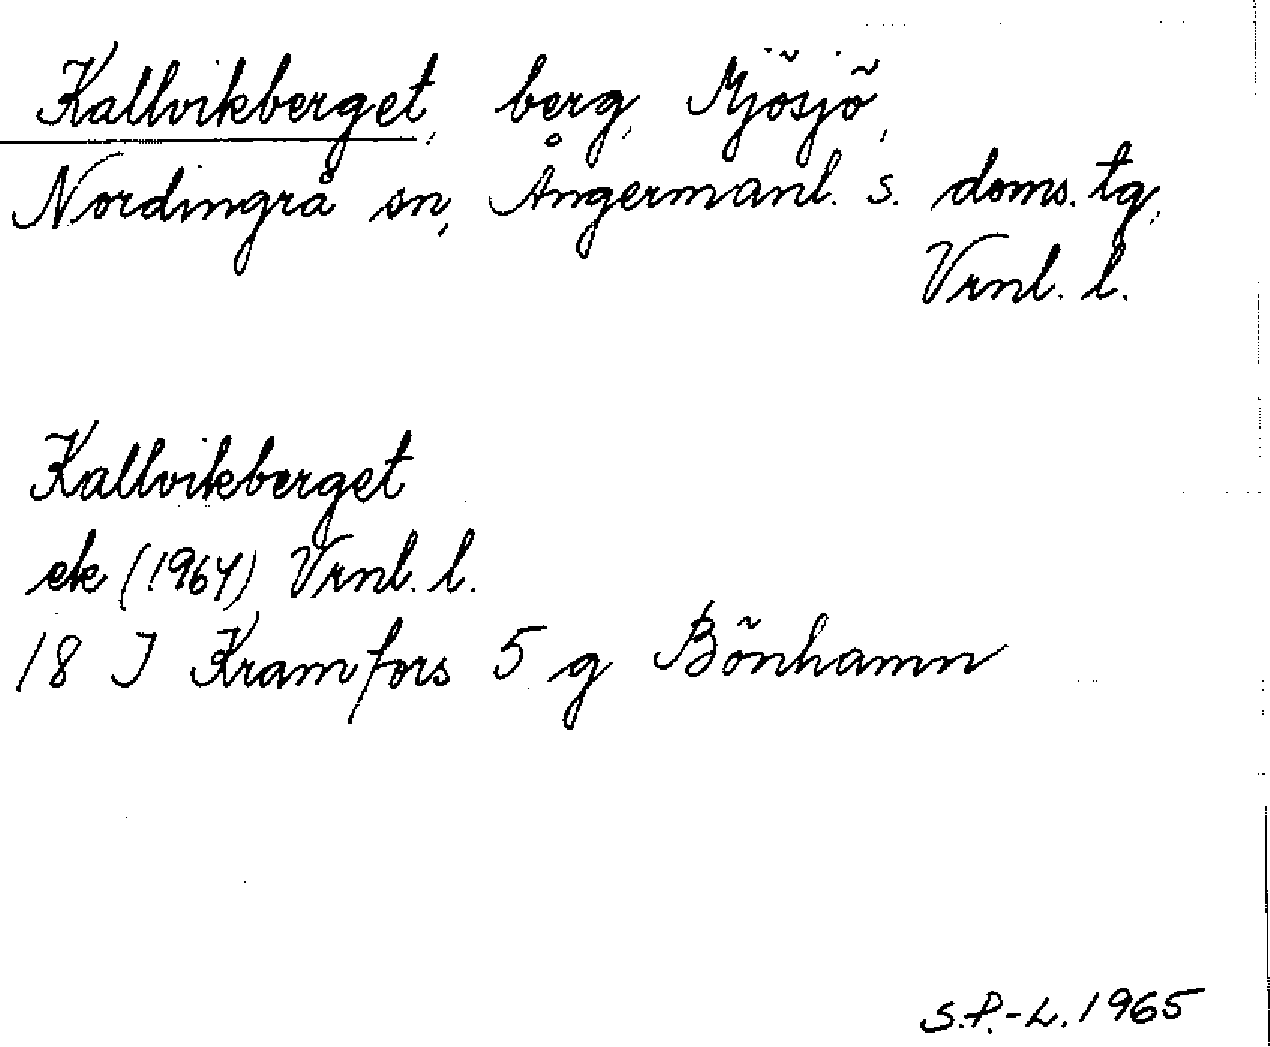 Kallvikberget, berg, Mjösjö,
Nordingrå sn, Ångermanl. s. doms. tg,
Vrnl. l.
Kallvikberget
ek (1964) Vrnl. l.
18 I Kramfors 5 g Bönhamn
S.P.-L. 1965